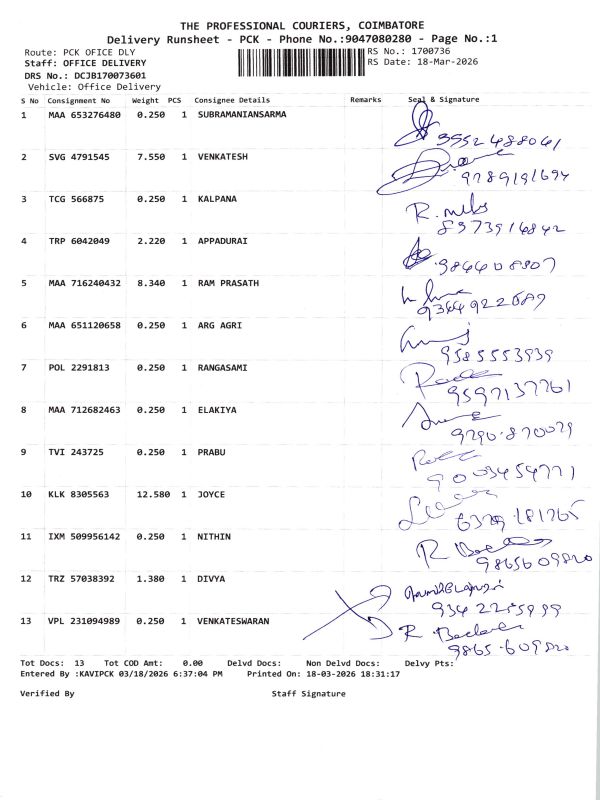 THE PROFESSIONAL COURIERS, COIMBATORE
Delivery Runsheet - PCK - Phone No.:9047080280 - Page No.:1
Route: PCK OFICE DLY
RS No.: 1700736
Staff: OFFICE DELIVERY
RS Date: 18-Mar-2026
DRS No.: DCJB170073601
Vehicle: Office Delivery
S No Consignment No Weight PCS Consignee Details Remarks Seal & Signature
1 MAA 653276480 0.250 1 SUBRAMANIANSARMA
2 SVG 4791545 7.550 1 VENKATESH
3 TCG 566875 0.250 1 KALPANA
4 TRP 6042049 2.220 1 APPADURAI
5 MAA 716240432 8.340 1 RAM PRASATH
6 MAA 651120658 0.250 1 ARG AGRI
9585553939
7 POL 2291813 0.250 1 RANGASAMI
9597137761
8 MAA 712682463 0.250 1 ELAKIYA
9 TVI 243725 0.250 1 PRABU
9003454771
10 KLK 8305563 12.580 1 JOYCE
11 IXM 509956142 0.250 1 NITHIN
9865609820
12 TRZ 57038392 1.380 1 DIVYA
13 VPL 231094989 0.250 1 VENKATESWARAN
9865609820
Tot Docs: 13 Tot COD Amt: 0.00 Delvd Docs: Non Delvd Docs: Delvy Pts:
Entered By :KAVIPCK 03/18/2026 6:37:04 PM Printed On: 18-03-2026 18:31:17
Verified By Staff Signature